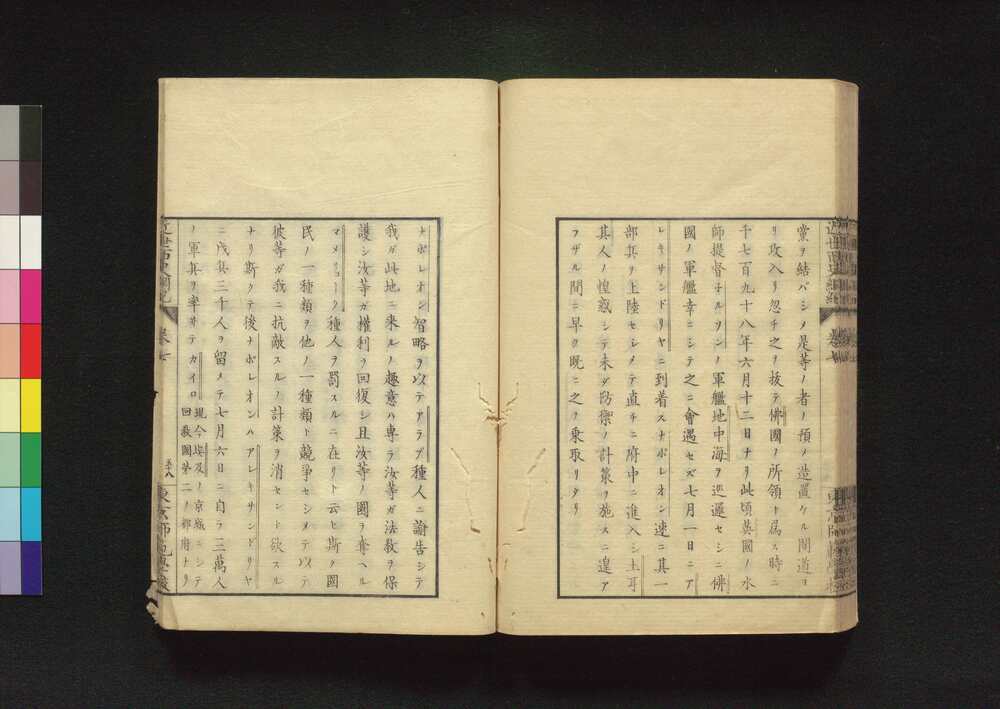 黨ヲ結バシメ是等ノ者ノ預メ造置ケル間道ヨ
リ攻入リ忽チ之ヲ拔テ佛國ノ所領ト爲ス時ニ
千七百九十八年六月十二日ナリ此頃英國ノ水
師提督チルソンノ軍艦地中海ヲ巡邏セシニ佛
國ノ軍艦幸ニシテ之ニ會遇セズ七月一日ニア
レキサンドリヤニ到着スナポレオン速ニ其一
部兵ヲ上陸セシメテ直チニ府中ニ進入シ土耳
其人ノ惶惑シテ未ダ防禦ノ計策ヲ施スニ遑ア
ラザル間ニ早ク既ニ之ヲ乘取リタリ
ナポレオン智略ヲ以テアラブ種人ニ諭告シテ
我ガ此地ニ來ルノ趣意ハ專ラ汝等ガ法敎ヲ保
護シ汝等ガ權利ヲ回復シ且汝等ノ國ヲ奪ヘル
マメリューク種人ヲ罰スルニ在リト云ヒ斯ク國
民ノ一種類ヲ他ノ一種類ト競爭セシメテ以テ
彼等ガ我ニ抗敵スルノ計策ヲ消セント欲スル
ナリ斯クテ後ナポレオンハアレキサンドリヤ
ニ戍兵三千人ヲ留メテ七月六日ニ自ラ三萬人
ノ軍兵ヲ率サテカイロ
現今埃及ノ京城ニシテ
回敎國第二ノ都府ナリ
近世西史綱紀
卷七